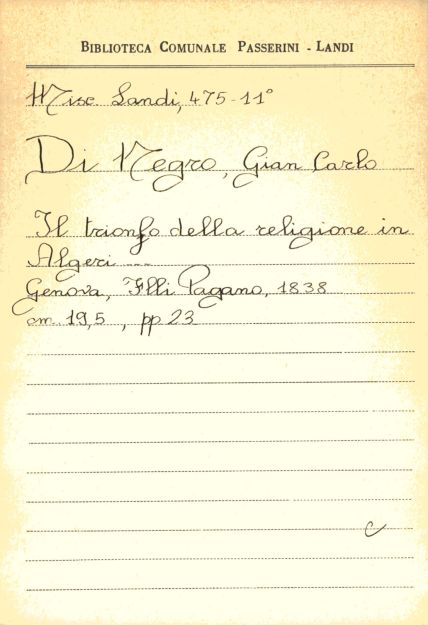 BIBLIOTECA COMUNALE PASSERINI - LANDI
Misc Landi, 475-11°
Di Negro, Gian Carlo
Il trionfo della religione in
Algeri ...
Genova, Flli Pagano, 1838
cm. 19,5, pp 23
c